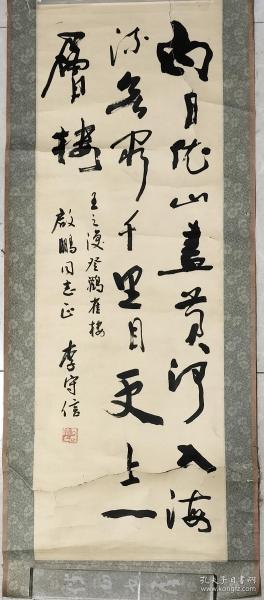 白日依山盡黄河入海
流欲窮千里目更上一
層樓
王之渙登鸛雀樓
啟鵬同志正
李守信
孔夫子旧书网